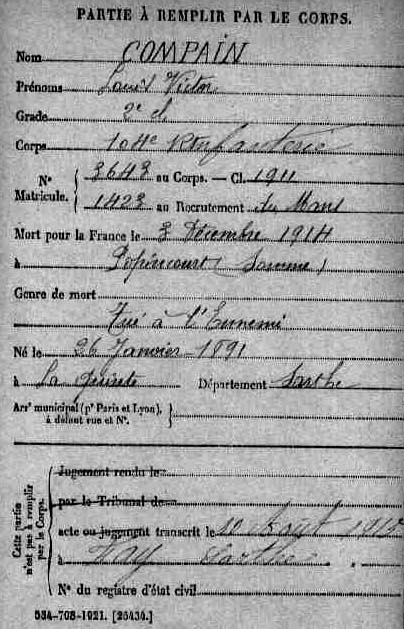 PARTIE À REMPLIR PAR LE CORPS.
Nom COMPAIN
Prénoms Louis Victor
Grade 2e cl
Corps 104e Rt Infanterie
N° Matricule. { 3643 au Corps. — Cl. 1911
1423 au Recrutement du Mans
Mort pour la France le 3 Décembre 1914
à Popincourt (Somme)
Genre de mort
Tué à l'Ennemi
Né le 26 Janvier 1891
à La Département Sarthe
Arr' municipal (p' Paris et Lyon), à défaut rue et N°. }
Cette partie n'est pas à remplir par le Corps.
Jugement rendu le
par le Tribunal de
acte ou jugement transcrit le 10 1915
à Sarthe
N° du registre d'état civil
534-708-1921. [26434.]